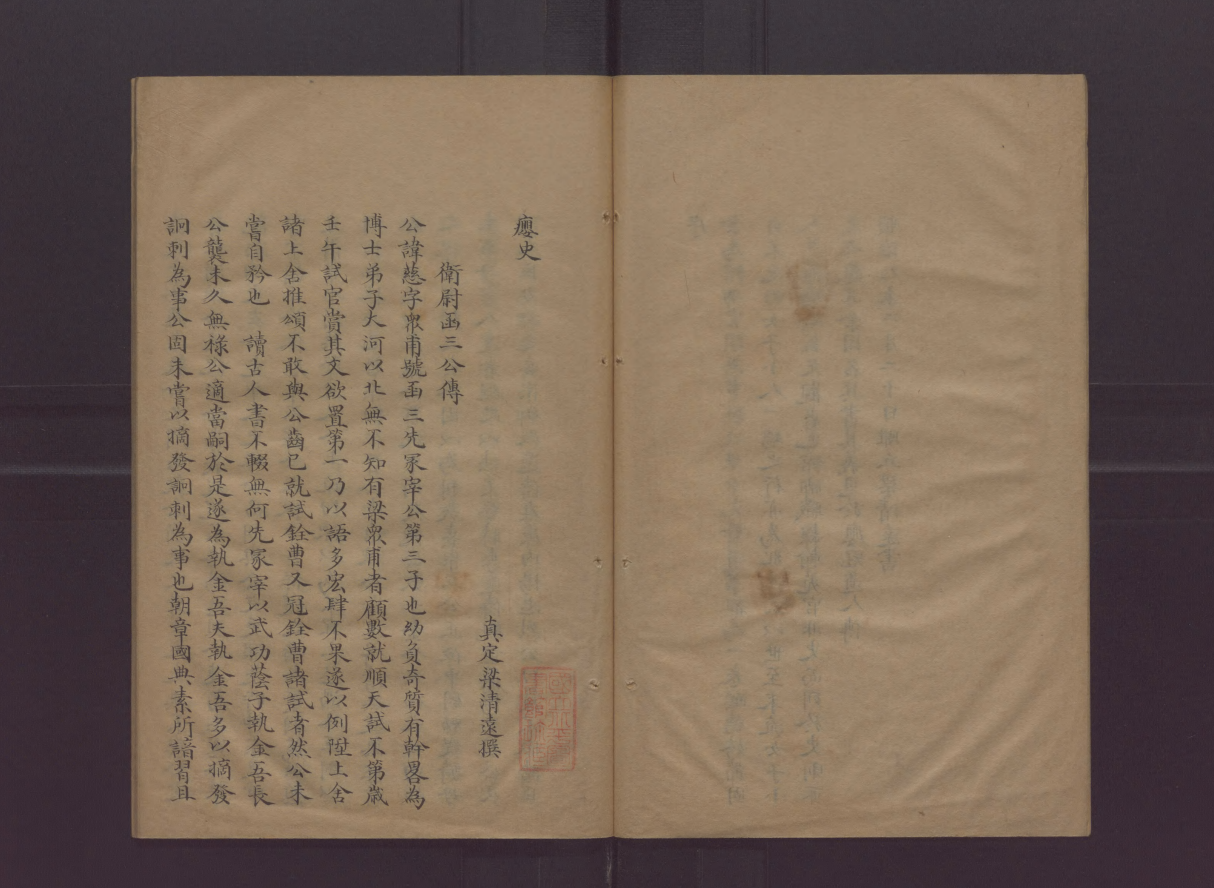 癭史
真定梁清遠撰
衛尉函三公傳
公諱慈字眾甫號函三先冢宰公第三子也幼負奇質有幹畧為
博士弟子大河以北無不知有梁眾甫者顧數就順天試不第歲
壬午試官賞其文欲置第一乃以語多宏肆不果遂以例陞上舍
諸上舍推頌不敢與公齒已就試銓曹又冠銓曹諸試者然公未
嘗自矜也讀古人書不輟無何先冢宰以武功蔭子執金吾長
公襲未久無祿公適當嗣於是遂為執金吾夫執金吾多以摘發
詗刺為事公固未嘗以摘發詗刺為事也朝章國典素所諳習且